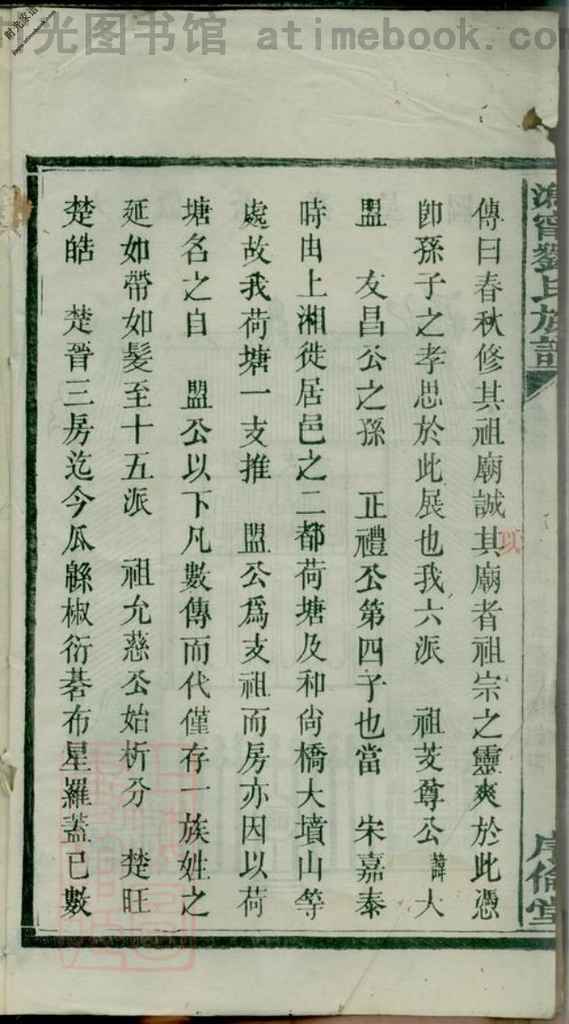 时光图书馆 atimebook.com
傳曰春秋修其祖廟誠其廟者祖宗之靈爽於此憑
以
卽孫子之孝思於此展也我六派 祖芰尊公諱大
盟 友昌公之孫 正禮公第四子也當 宋嘉泰
時由上湘徙居邑之二都荷塘及和尙橋大墳山等
處故我荷塘一支推 盟公爲支祖而房亦因以荷
塘名之自 盟公以下凡數傳而代僅存一族姓之
延如帶如髮至十五派 祖允慈公始析分 楚旺
楚皓 楚晉三房迄今瓜緜椒衍碁布星羅蓋已數
甯劉氏族譜
倫堂